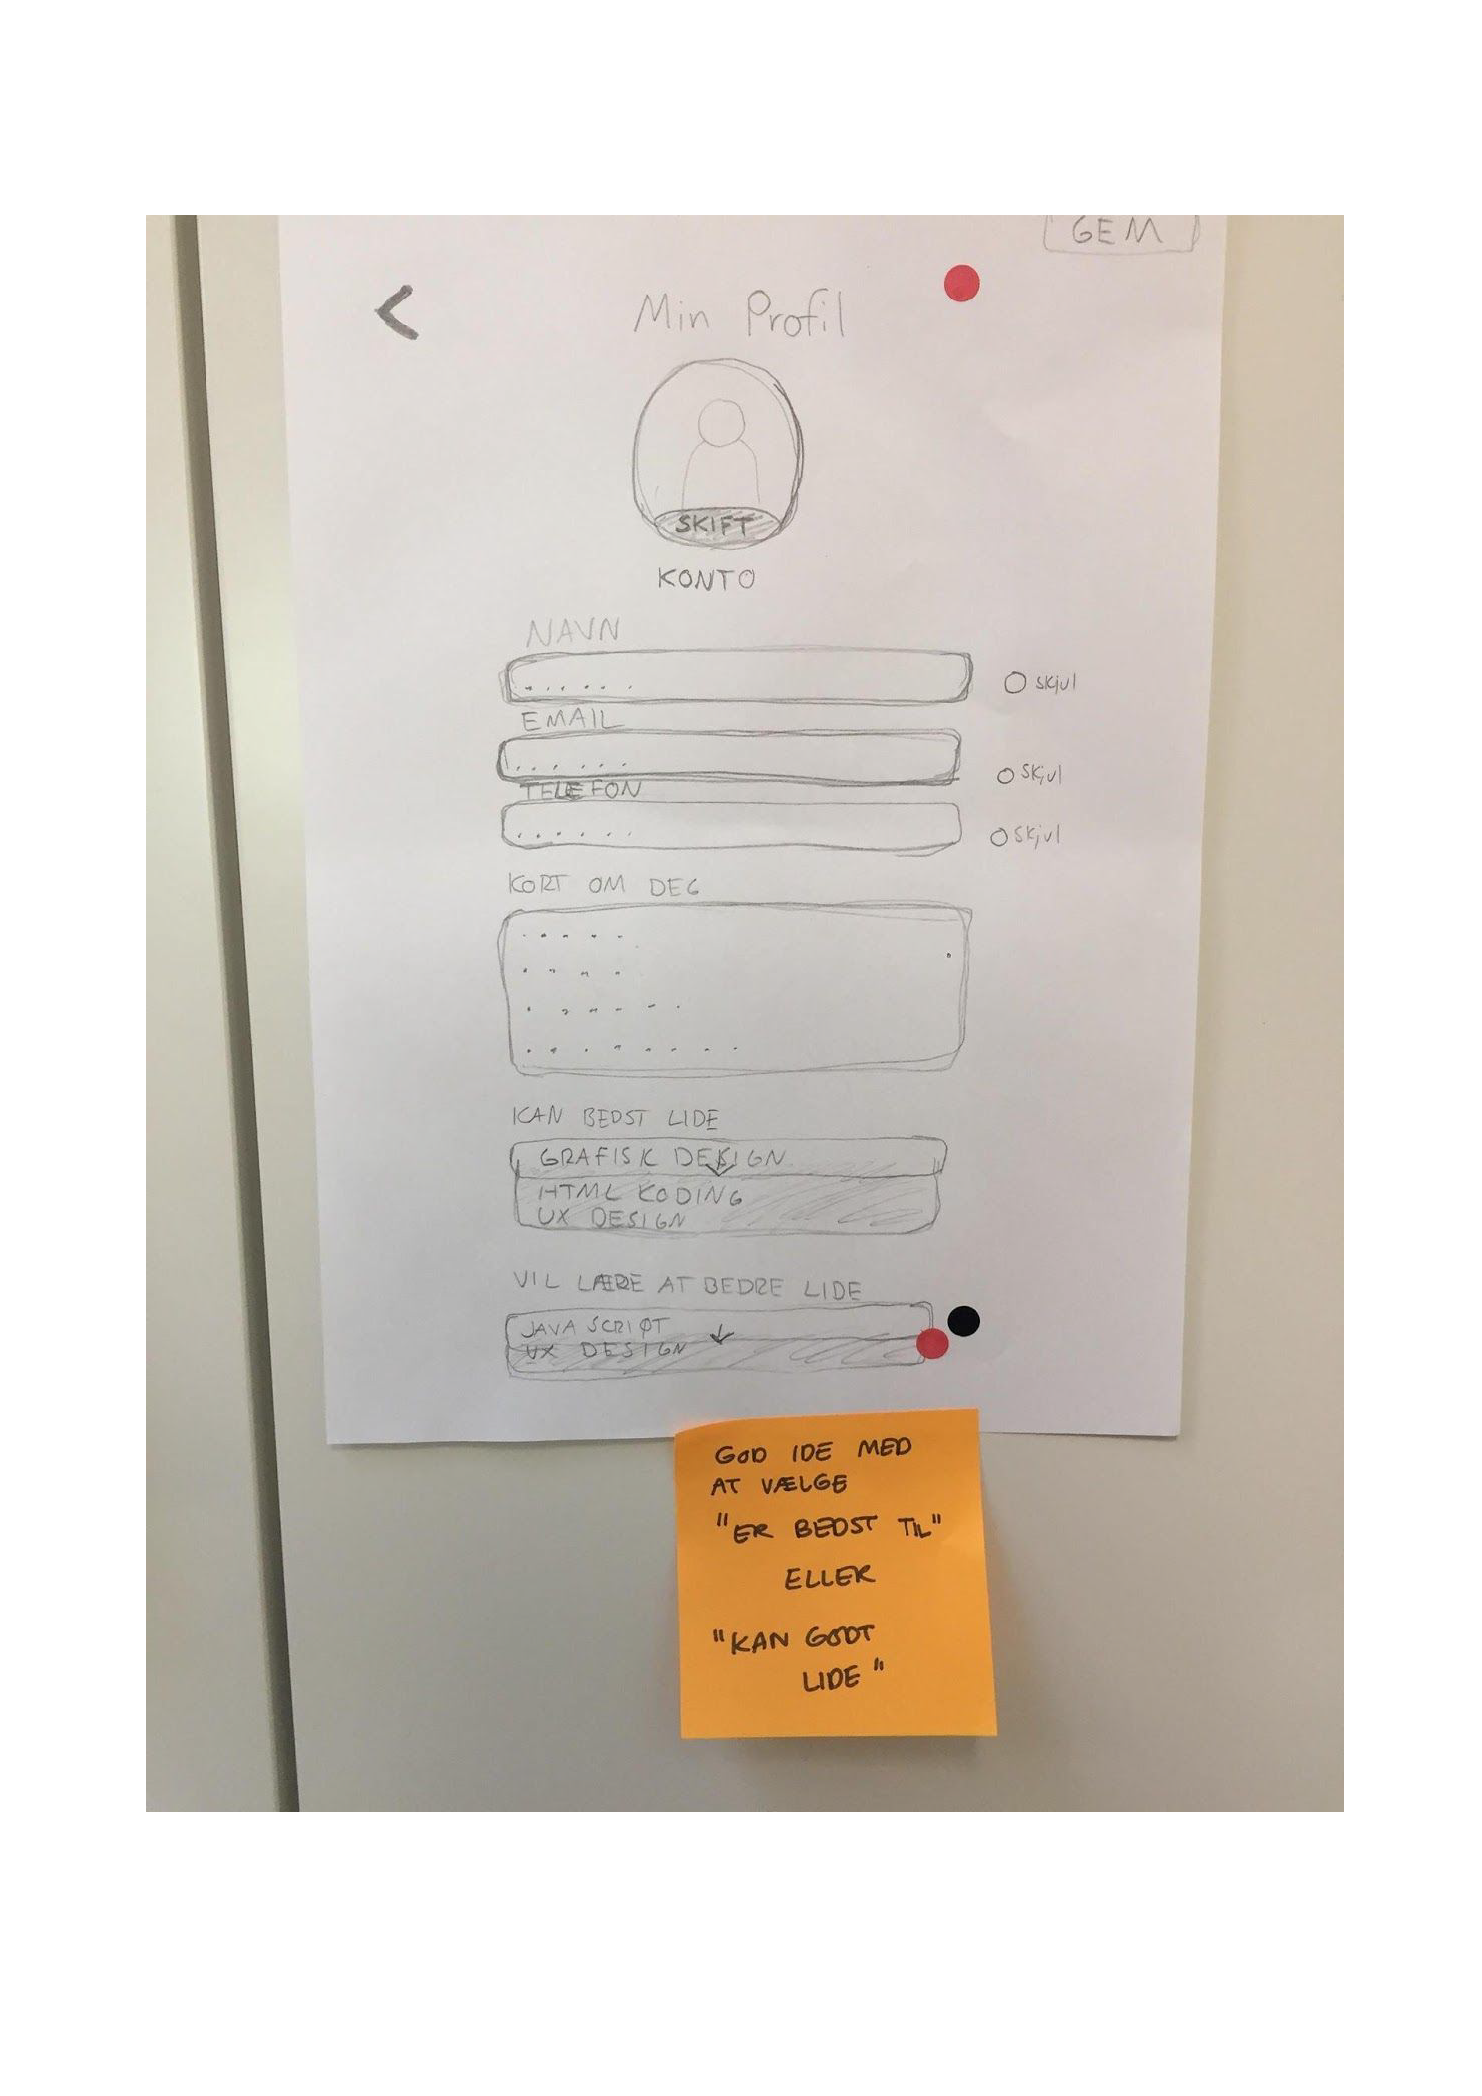 GEM
<
Min Profil
SKIFT
KONTO
NAVN
skjul
EMAIL
Skjul
TELEFON
Skjul
KORT OM DEG
KAN BEDST LIDE
GRAFISK DESIGN
HTML KODING
UX DESIGN
VIL LÆRE AT BEDRE LIDE
JAVA SCRIPT
UX DESIGN
GOD IDE MED
AT VÆLGE
"ER BEDST TIL"
ELLER
"KAN GODT
LIDE"